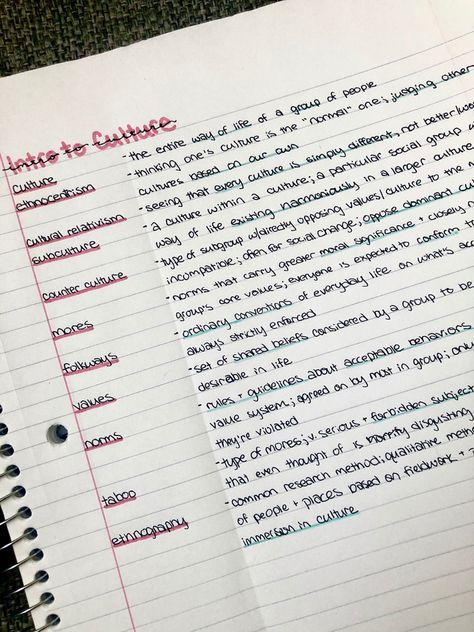 Intro to Culture
culture - the entire way of life of a group of people
ethnocentrism - thinking one's culture is the "normal" one; judging other
cultures based on our own
cultural relativism - seeing that every culture is simply different, not better/wor
subculture - a culture within a culture; a particular social group w
way of life existing harmoniously in a larger culture
counter culture - type of subgroup w/directly opposing values/culture to the
incompatible; often for social change; oppose dominant cu
mores - norms that carry greater moral significance + closely r
group's core values; everyone is expected to conform
folkways - ordinary conventions of everyday life on what's acc
always strictly enforced
values - set of shared beliefs considered by a group to be
desirable in life
norms - rules + guidelines about acceptable behaviors
value system; agreed on by most in group; only
they're violated
taboo - type of mores; v. serious + forbidden subject
that even thought of is horribly disgusting
ethnography - common research method; qualitative meth
of people + places based on fieldwork +
immersion in culture